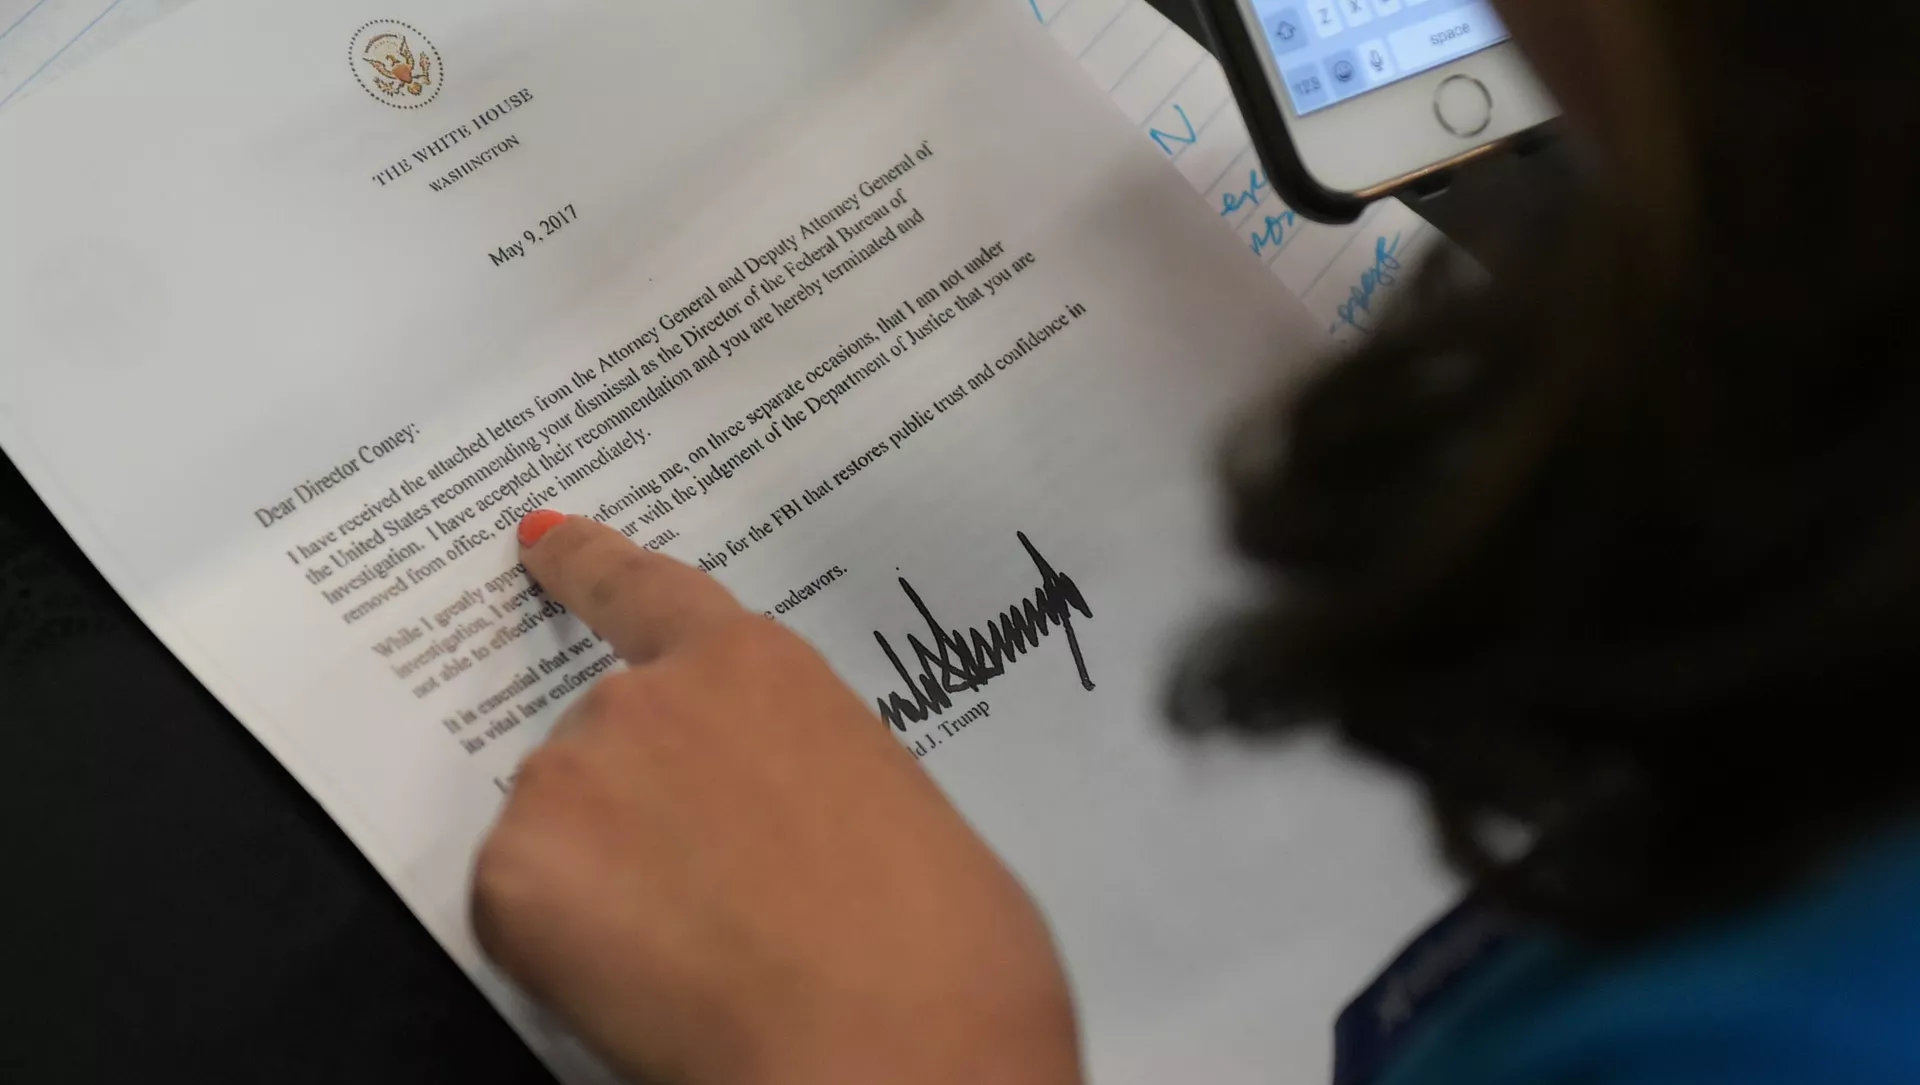 THE WHITE HOUSE
WASHINGTON
May 9, 2017
Dear Director Comey:
I have received the attached letters from the Attorney General and Deputy Attorney General of
the United States recommending your dismissal as the Director of the Federal Bureau of
Investigation. I have accepted their recommendation and you are hereby terminated and
removed from office, effective immediately.
While I greatly appre informing me, on three separate occasions, that I am not under
investigation, I never ur with the judgment of the Department of Justice that you are
not able to effectively reau.
It is essential that we ship for the FBI that restores public trust and confidence in
its vital law enforcem
I endeavors.
ld J. Trump
Z X
123 space
N